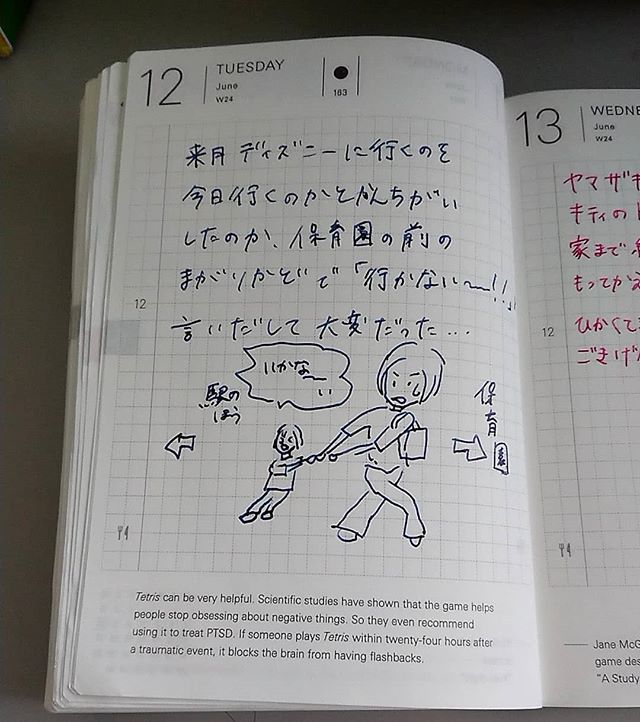 12
TUESDAY
June
W24
163
来月ディズニーに行くのを
今日行くのかとかんちがい
したのか、保育園の前の
まがりかどで「行かない〜!!」
言いだして大変だった…
12
いかな〜い
駅の
ほう
保育園
Tetris can be very helpful. Scientific studies have shown that the game helps
people stop obsessing about negative things. So they even recommend
using it to treat PTSD. If someone plays Tetris within twenty-four hours after
a traumatic event, it blocks the brain from having flashbacks.
13
WEDNE
June
W24
ヤマザキ
キティの
家まで
もってかえ
12
ひかくて
ごきげん
Jane McG
game des
"A Study